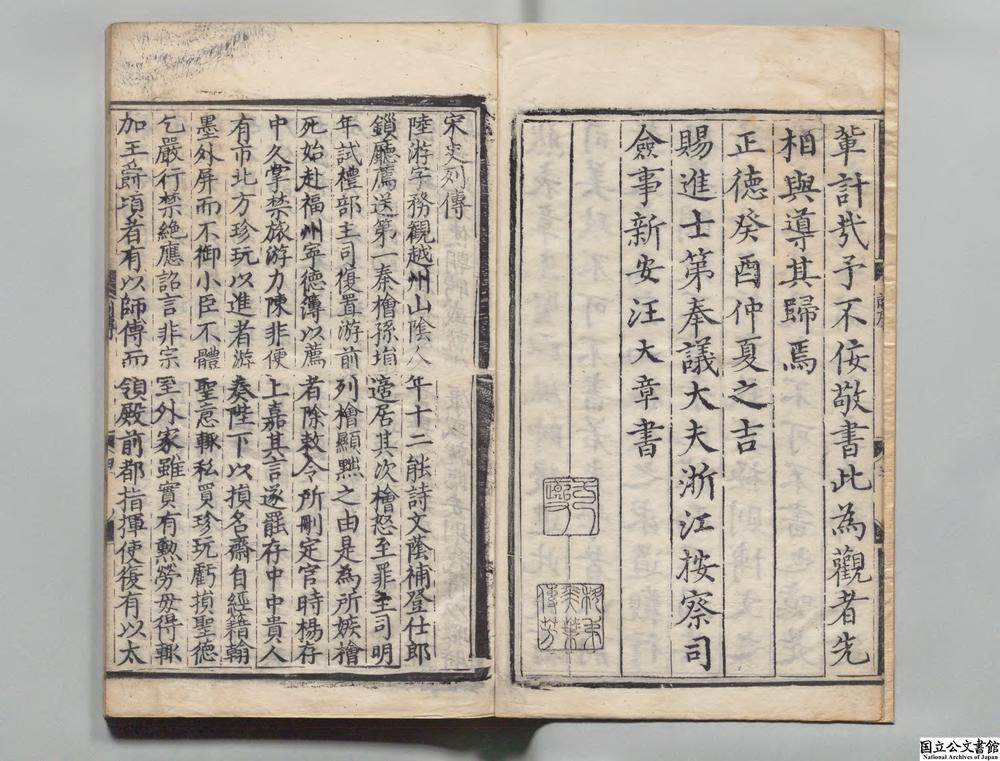 軰計㢤予不佞敬書此為觀者先
相與導其歸焉
正德癸酉仲夏之吉
賜進士第奉議大夫浙江按察司
僉事新安汪大章書
宋史列傳
陸游字務觀越州山陰人年十二能詩文蔭補登仕郎
鎖廳薦送第一秦檜孫塤適居其次檜怒至罪主司明
年試禮部主司復置游前列檜顯黜之由是為所嫉檜
死始赴福州寧德簿以薦者除敕令所刪定官時楊存
中久掌禁旅游力陳非便上嘉其言遂罷存中中貴人
有市北方珍玩以進者游奏陛下以損名齋自經籍翰
墨外屏而不御小臣不體聖意輒私買珍玩虧損聖德
乞嚴行禁絶應詔言非宗室外家雖實有勲勞毋得輒
加王爵頃者有以師傅而領殿前都指揮使復有以太
国立公文書館
National Archives of Japan